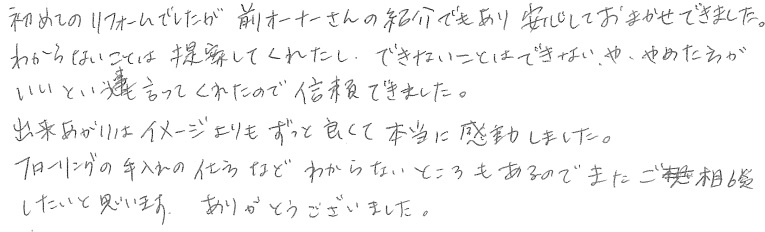 初めてのリフォームでしたが 前オーナーさんの紹介でもあり 安心しておまかせできました。
わからないことは提案してくれたし、できないことはできない、や、やめたほうが
いいという事も言ってくれたので信頼できました。
出来あがりはイメージよりもずっと良くて本当に感動しました。
フローリングの手入れの仕方などわからないところもあるのでまたご相談
したいと思います。ありがとうございました。